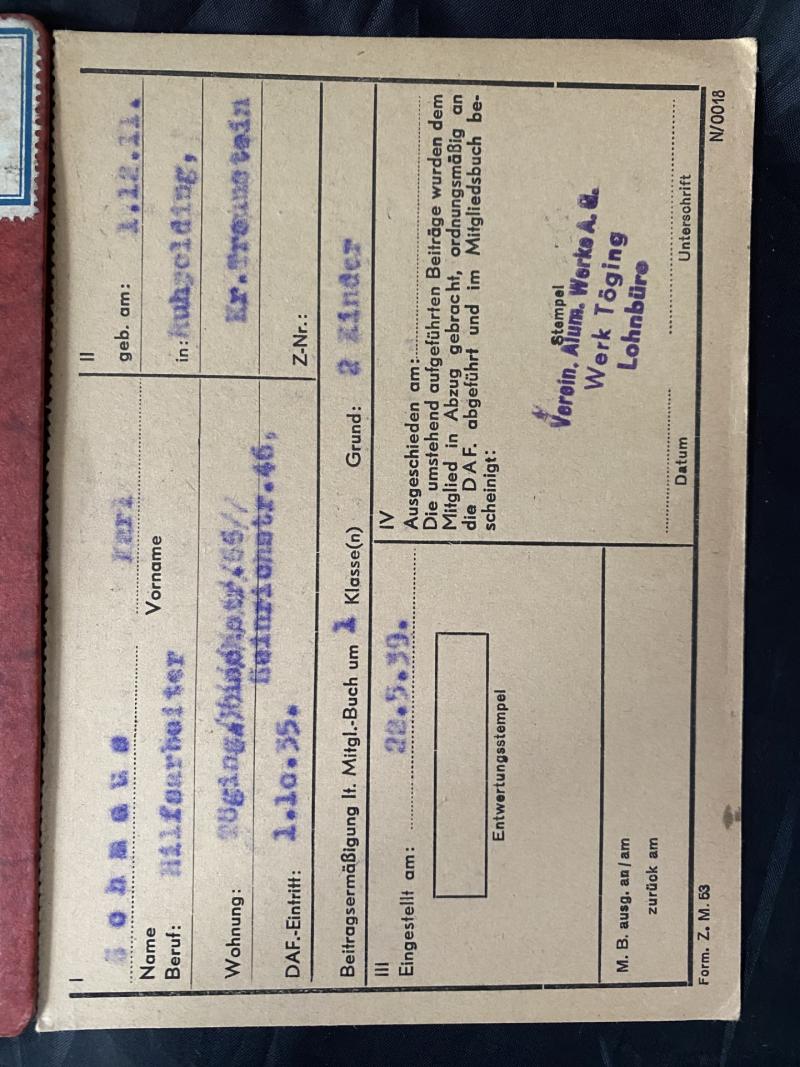 I
Karl
Name
Vorname
Beruf: Hilfsarbeiter
Wohnung: Töging/
Heinrichstr.46,
DAF.-Eintritt: 1.10.35.
II
geb. am: 1.12.11.
in: Ruhpolding,
Kr.Traunstein
Z-Nr.:
Beitragsermäßigung lt. Mitgl.-Buch um 1 Klasse(n) Grund: 2 Kinder
III
Eingestellt am: 22.5.39.
Entwertungsstempel
M. B. ausg. an/am
zurück am
IV
Ausgeschieden am:
Die umstehend aufgeführten Beiträge wurden dem
Mitglied in Abzug gebracht, ordnungsmäßig an
die DAF. abgeführt und im Mitgliedsbuch be-
scheinigt:
Stempel
Verein. Alum. Werke A. G.
Werk Töging
Lohnbüro
Datum
Unterschrift
Form. Z. M. 53
N/0018